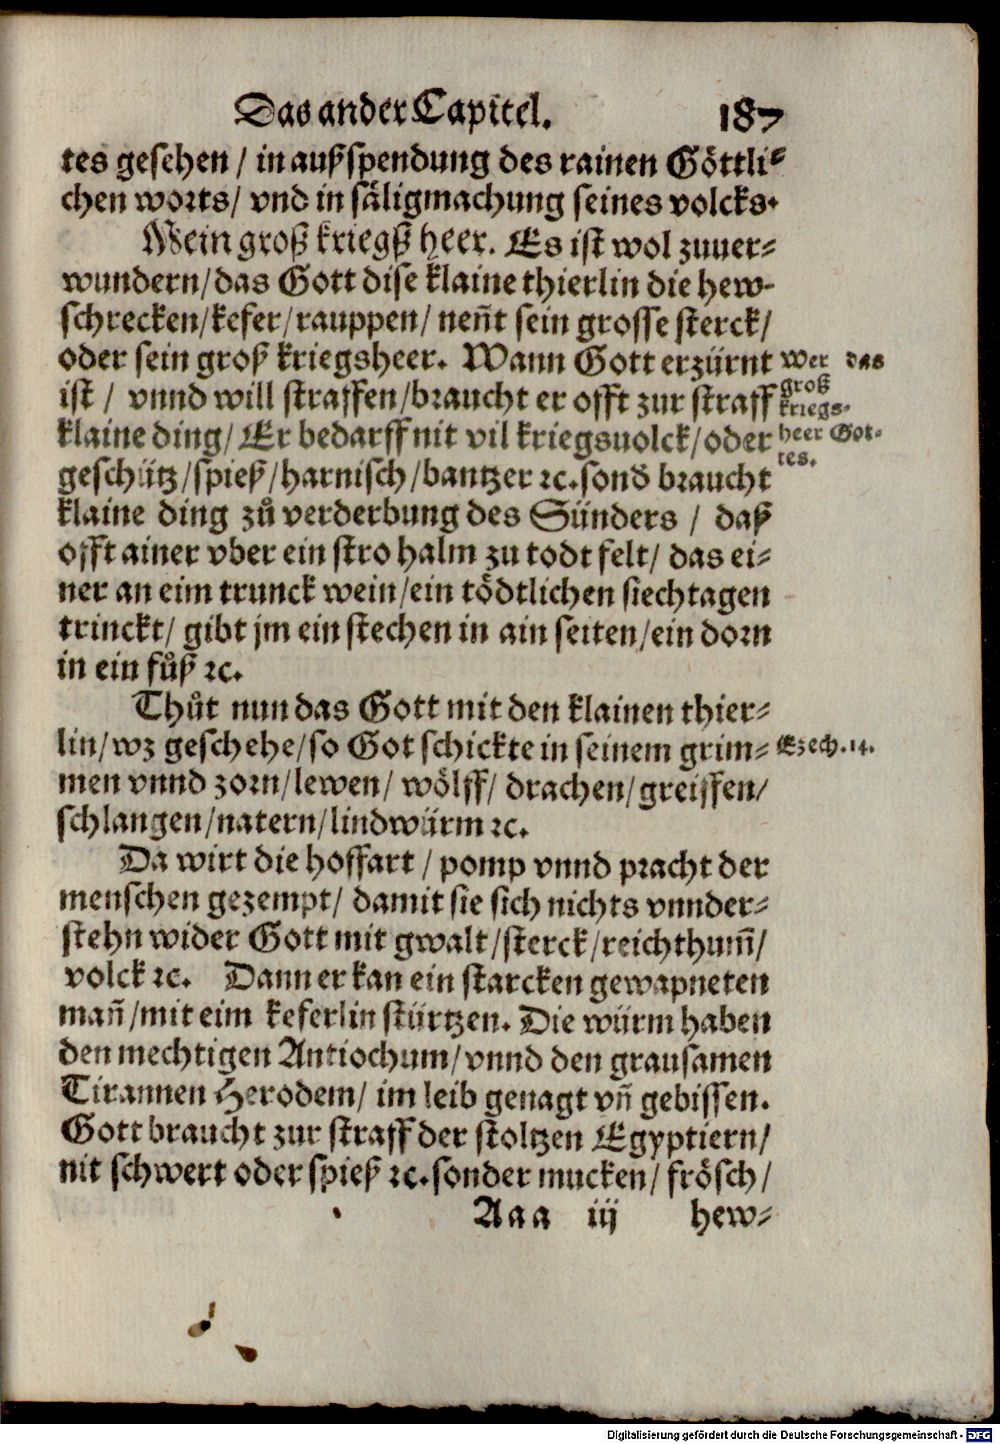 Das ander Capitel. 187
tes gesehen / in außspendung des rainen Göttli⸗
chen worts/ vnd in säligmachung seines volcks.
Mein groß kriegß heer. Es ist wol zuuer⸗
wundern/das Gott dise klaine thierlin die hew⸗
schrecken/kefer/rauppen/ neñt sein grosse sterck/
oder sein groß kriegsheer. Wann Gott erzürnt
ist / vnnd will straffen/braucht er offt zur straff
klaine ding/ Er bedarff nit vil kriegsuolck/oder
geschütz/spieß/harnisch/bantzer ꝛc.sond braucht
klaine ding zů verderbung des Sünders / daß
offt ainer vber ein stro halm zu todt felt/ das ei⸗
ner an eim trunck wein/ein tödtlichen siechtagen
trinckt/ gibt jm ein stechen in ain seiten/ein dorn
in ein fůß ꝛc.
Wer das
groß
kriegs⸗
heer Got⸗
tes.
Thůt nun das Gott mit den klainen thier⸗
lin/wz geschehe/so Got schickte in seinem grim⸗
men vnnd zorn/lewen/ wölff/ drachen/greiffen/
schlangen/natern/lindwürm ꝛc.
Ezech.14.
Da wirt die hoffart / pomp vnnd pracht der
menschen gezempt/ damit sie sich nichts vnnder⸗
stehn wider Gott mit gwalt/sterck/reichthum̃/
volck ꝛc. Dann er kan ein starcken gewapneten
mañ/mit eim keferlin stürtzen. Die würm haben
den mechtigen Antiochum/vnnd den grausamen
Tirannen Herodem/ im leib genagt vñ gebissen.
Gott braucht zur straff der stoltzen Egyptiern/
nit schwert oder spieß ꝛc.sonder mucken/ frösch/
Aaa iij hew⸗
Digitalisierung gefördert durch die Deutsche Forschungsgemeinschaft - DFG